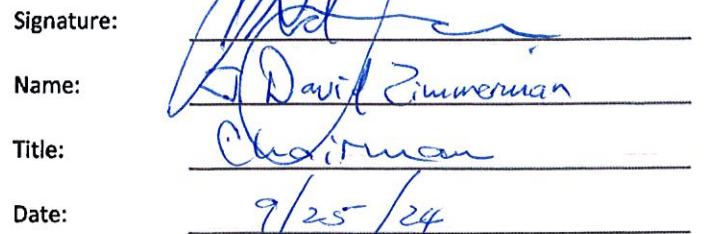 Signature:
Name: David Zimmerman
Title: Chairman
Date: 9/25/24